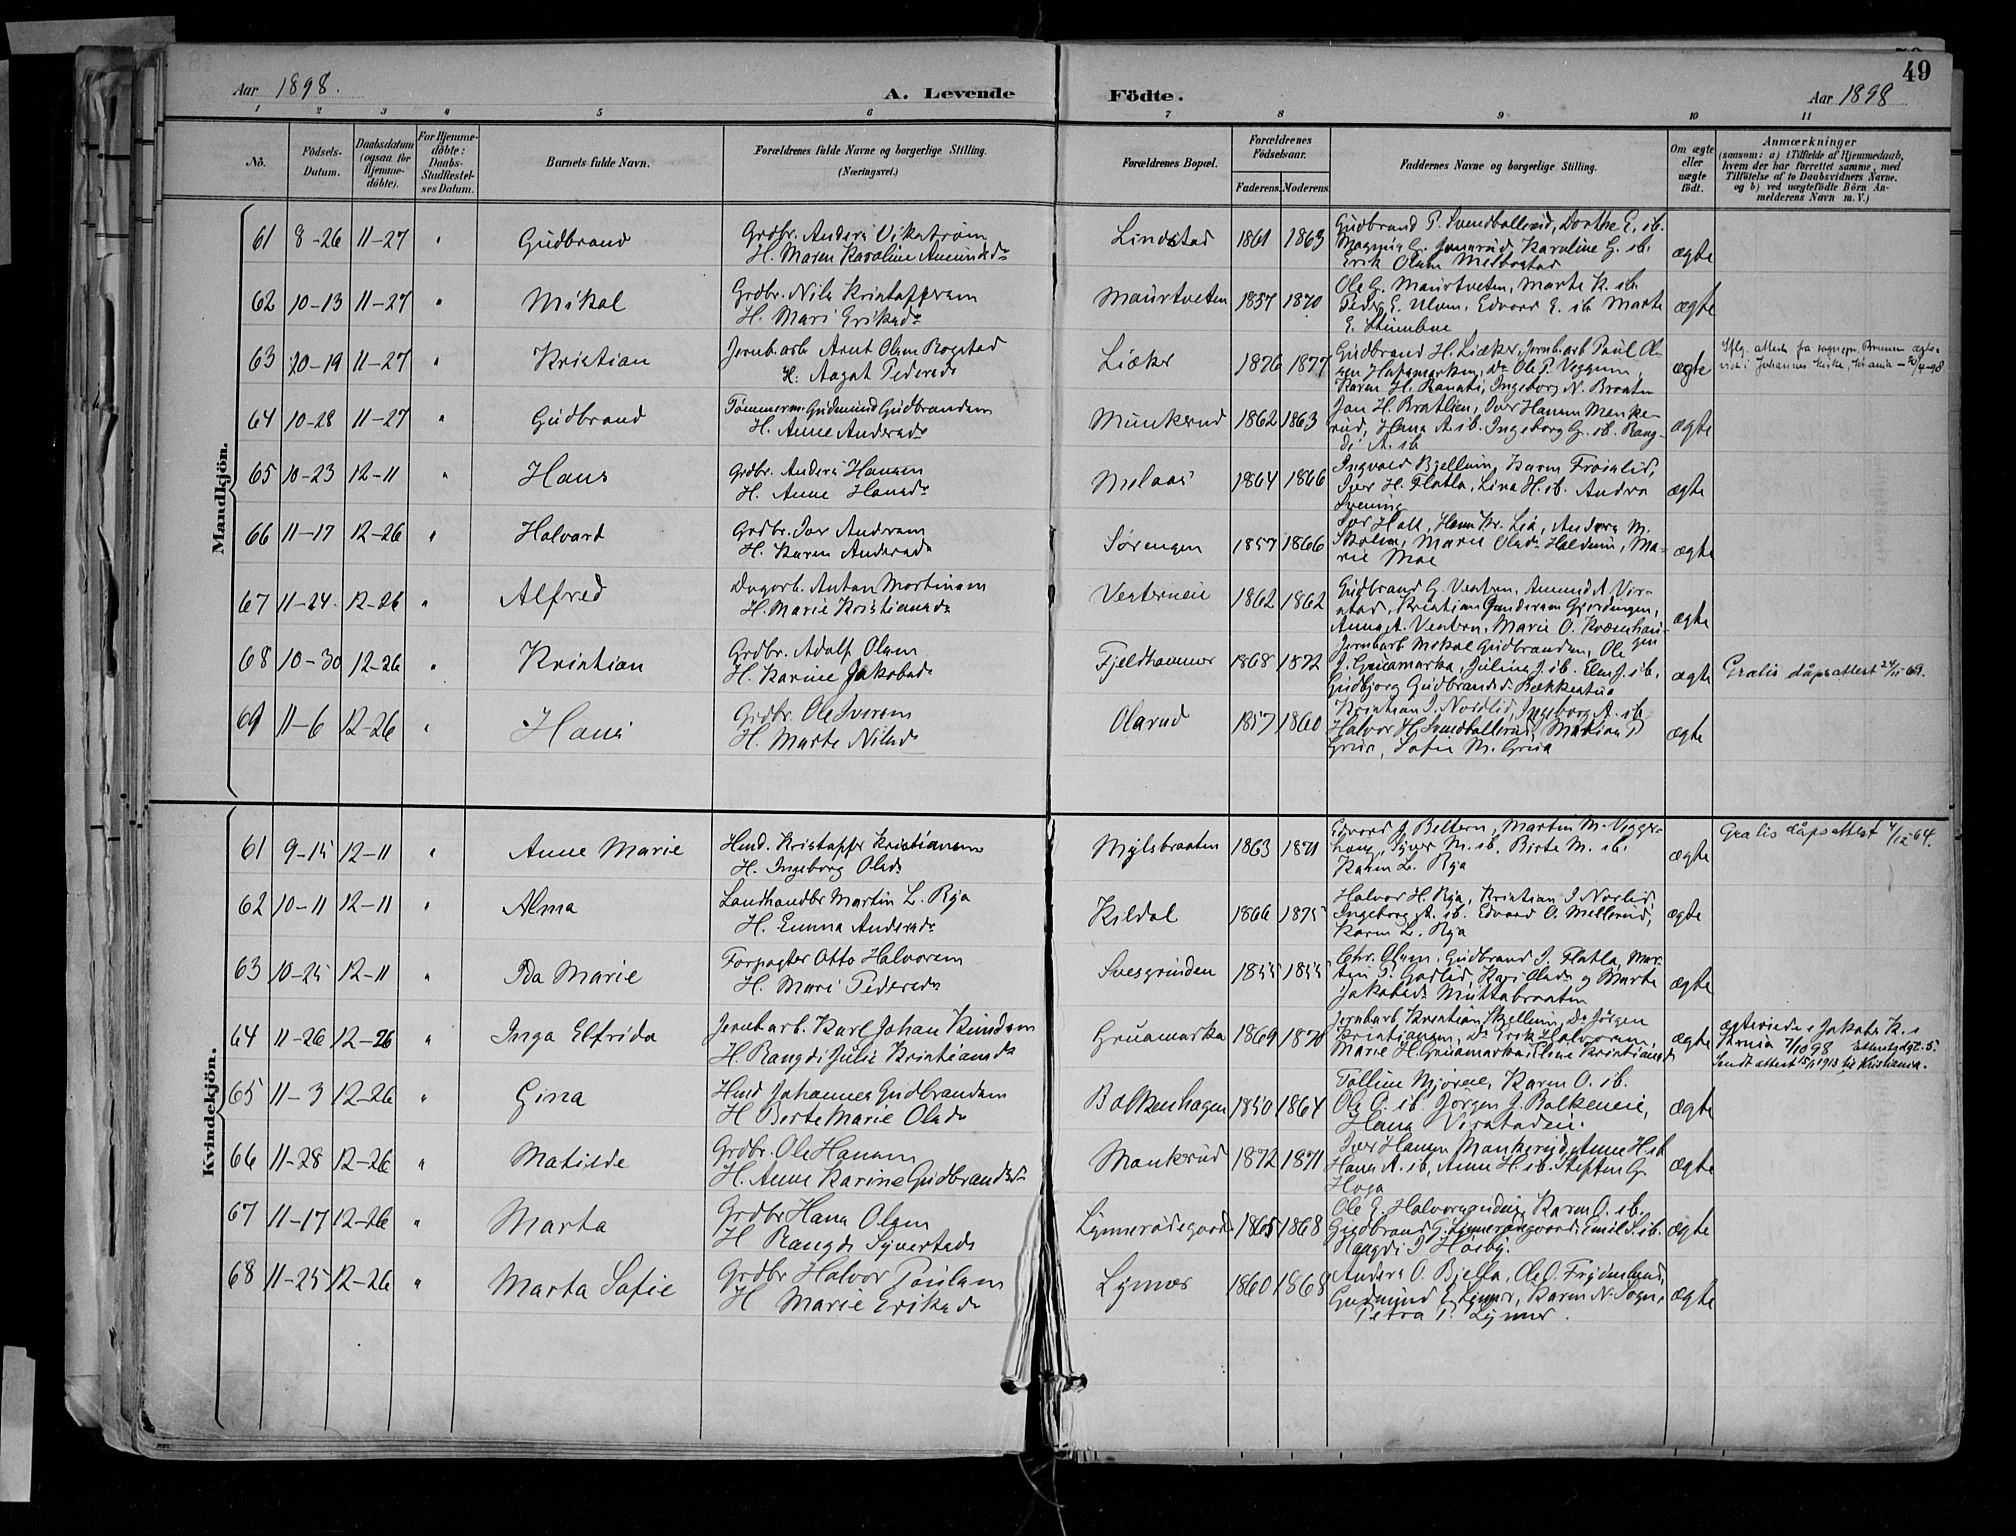 49
Aar 1898.
A. Levende
Födte.
Aar 1898
1 2 3 4 5 6 7 8 9 10 11
No.
Födsels-Datum.
Daabsdatum (ogsaa for Hjemme-döbte).
For Hjemme-döbte: Daabs-Stadfæstel-ses Datum.
Barnets fulde Navn.
Forældrenes fulde Navne og borgerlige Stilling. (Næringsvei.)
Forældrenes Bopæl.
Forældrenes Födselsaar.
Faderens. Moderens.
Faddernes Navne og borgerlige Stilling.
Om ægte eller uægte födt.
Anmærkninger
(saasom: a) i Tilfælde af Hjemmedaab,
hvem der har forrettet samme, med
Tilföielse af to Daabsvidners Navne,
og b) ved uægtefödte Börn An-
melderens Navn m. V.)
Mandkjön.
61 8-26 11-27 " Gudbrand
Grdbr. Anders Vikström
H. Maren Karoline Amundsdr
Lindstad 1861 1863
Gudbrand P. Svendballerud, Dorthe E. ib.
Magnus G. Jonsrud, Karoline G. ib.
Erik Olsen Melbostad
ægte
62 10-13 11-27 " Mikal
Grdbr. Nils Kristoffersen
H. Mari Eriksdr
Maurtveten 1857 1870
Ole G. Maurtveten, Marte K. ib.
Peder E. Ulven, Edvard E. ib. Marte
E.
ægte
63 10-19 11-27 " Kristian
Jernb.arb. Arnt Olsen Rogstad
H. Aagot Pedersdr
Liæker 1876 1877
Gudbrand H. Liæker, Jernb.arb Paul Ol-
sen, Do Ole P. Veggum,
Karen H. Ranati, Ingeborg N. Braaten
ægte
Iflg. attest fra sognepr. Bruun ægte-
viet i Johannes Kirke, Kr.ania - 20/4-98
64 10-28 11-27 " Gudbrand
Tømmerm. Gudmund Gudbrandsen
H. Anne Andersdr
Munkerud 1862 1863
Jon H. Bratlien, Iver Hansen Monke-
rud, Hans A. ib. Ingeborg G. ib. Rang-
di A. ib
ægte
65 10-23 12-11 " Hans
Grdbr. Anders Hansen
H. Anne Hansdr
Melaas 1864 1866
Ingvald Bjellum, Karen Frøislid,
Iver H. Flatla, Lina H. ib. Andrea
Svening
ægte
66 11-17 12-26 " Halvard
Grdbr. Iver Andersen
H. Karen Andersdr
Sørengen 1857 1866
Iver Hall, Hans Kr. Lia, Anders M.
Skolen, Marie Olsdr Haldum, Ma-
rie Moe
ægte
67 11-24 12-26 " Alfred
Dagarb. Anton Mortinsen
H. Marie Kristiansdr
Vesterneie 1862 1862
Gudbrand G. Vestern, Amund A. Vir-
stad, Kristian Gundersen Gjerdingen,
Anna A. Vestern, Marie O. Kværnhau-
gen
ægte
68 10-30 12-26 " Kristian
Grdbr. Adolf Olsen
H. Karine Jakobsdr
Fjeldhammer 1868 1872
Jernb.arb Mikal Gudbrandsen, Ole
J. Gruamarka, Juline J. ib. Elen J. ib.
Gudbjørg Gudbrandsdr Bækkestua
ægte
Gratis dåpsattest 24/11-69.
69 11-6 12-26 " Hans
Grdbr. Ole Iversen
H. Marte Nilsdr
Olarud 1857 1860
Kristian I. Nordlid, Ingeborg A. ib
Halvor H. Svendballerud, Martian P
Grua, Sofie M. Grua
ægte
Kvindekjön.
61 9-15 12-11 " Anne Marie
Husmd. Kristoffer Kristiansen
H. Ingeborg Olsdr
Mylsbraaten 1863 1871
Edvard J. Beltern, Martin M. Vigger-
houg, Syver M. ib. Birte M. ib.
Karen L. Rya
ægte
Gratis dåpsattest 4/12-64.
62 10-11 12-11 " Alma
Landhandler Martin L. Rya
H. Emma Andersdr
Kildal 1866 1875
Halvor H. Rya, Kristian I Norlid,
Ingeborg A. ib. Edvard O. Mellerud,
Karen L. Rya
ægte
63 10-25 12-11 " Ida Marie
Forpagter Otto Halvorsen
H. Mari Pedersdr
Svesgrinden 1855 1855
Chr. Olsen, Gudbrand I. Flatla, Mar-
tin P. Godlid, Kari Olsdr og Marte
Jakobsdr Muttabraaten
ægte
64 11-26 12-26 " Inga Elfrida
Jernb.arb. Karl Johan Knudsen
H. Rangdi Julie Kristiansdr
Gruamarka 1869 1870
Jernb.arb Kristian Skjellum, Do Jörgen
Kristiansen, Do Erik Halvorsen,
Marie H. Gruamarka, Eline Kristiansdr
ægte
ægteviede i Jakobs K. i
Kr.nia 7/10 98
Sendt attest 15/1 1913 til Kristiania.
65 11-3 12-26 " Gina
Husmd Johannes Gudbrandsen
H Berte Marie Olsdr
Balkenhagen 1850 1864
Tolline Mjøreie, Karen O. ib.
Ole O. ib. Jörgen J. Balkeneie,
Hans Virstadeie.
ægte
66 11-28 12-26 " Matilde
Grdbr. Ole Hansen
H. Anne Karine Gudbrandsdr
Monkerud 1872 1871
Iver Hansen Monkerud, Anne H. ib
Hans A. ib, Anne H. ib. Steffen G.
Haga
ægte
67 11-17 12-26 " Marta
Grdbr. Hans Olsen
H Rangdi Syvertsdr
Lynnerødegaard 1865 1868
Ole E. Halvorsgudeie, Karen O. ib.
Gudbrand G. Lynnerødegaard, Emil S. ib.
Rangdi I Hasby.
ægte
68 11-25 12-26 " Marta Sofie
Grdbr. Halvor Paulsen
H Marie Eriksdr
Lynner 1860 1868
Anders O. Bjella, Ole O. Frydenlund,
Gudmund E. Lynner, Karen N. Sogn,
Petra P. Lynner.
ægte